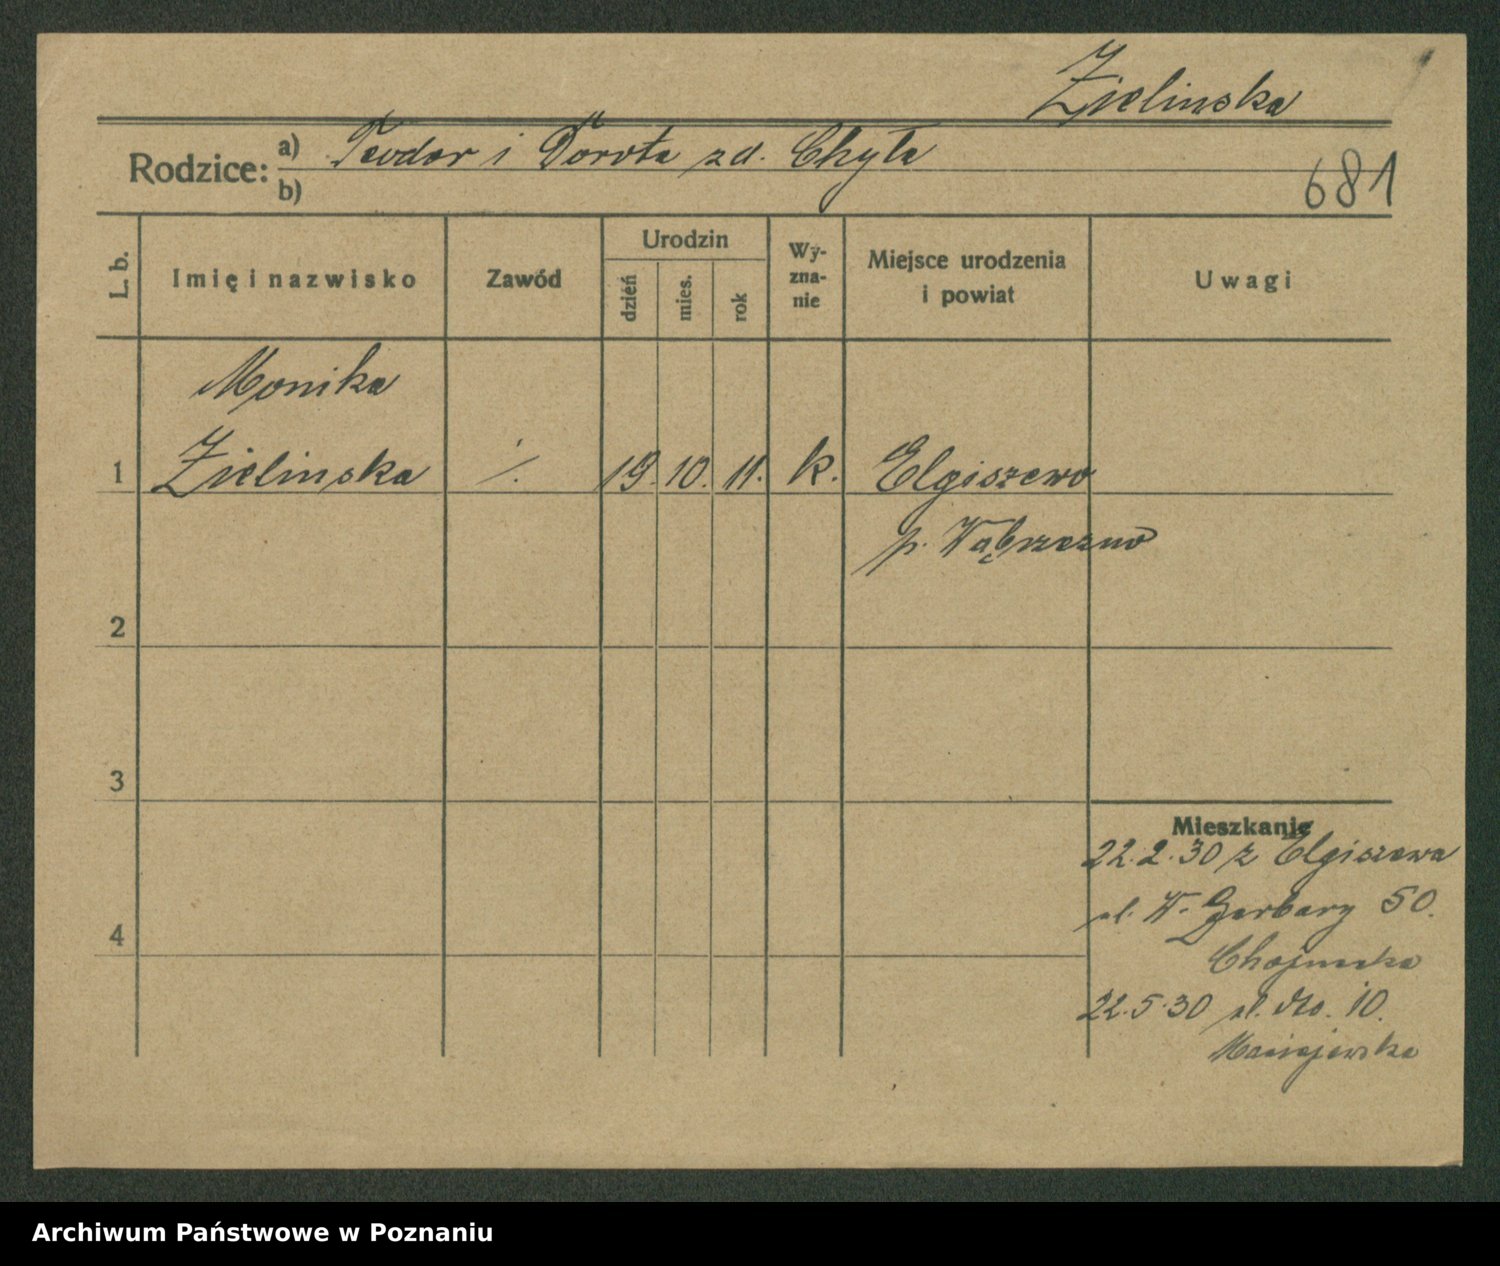 Zielinska
Rodzice: a) Teodor i Dorota zd. Chyła
b)
681
L. b.
Imię i nazwisko
Zawód
Urodzin
dzień
mies.
rok
Wy-
zna-
nie
Miejsce urodzenia
i powiat
Uwagi
Monika
1 Zielinska ·/. 19. 10. 11. k. Elgiszewo
p. Wąbrzezno
2
3
4
Mieszkanie
22.2.30 z Elgiszewa
ul. W. Garbary 50.
Chojnacka
22.5.30 ul. dto. 10.
Maciejewska
Archiwum Państwowe w Poznaniu